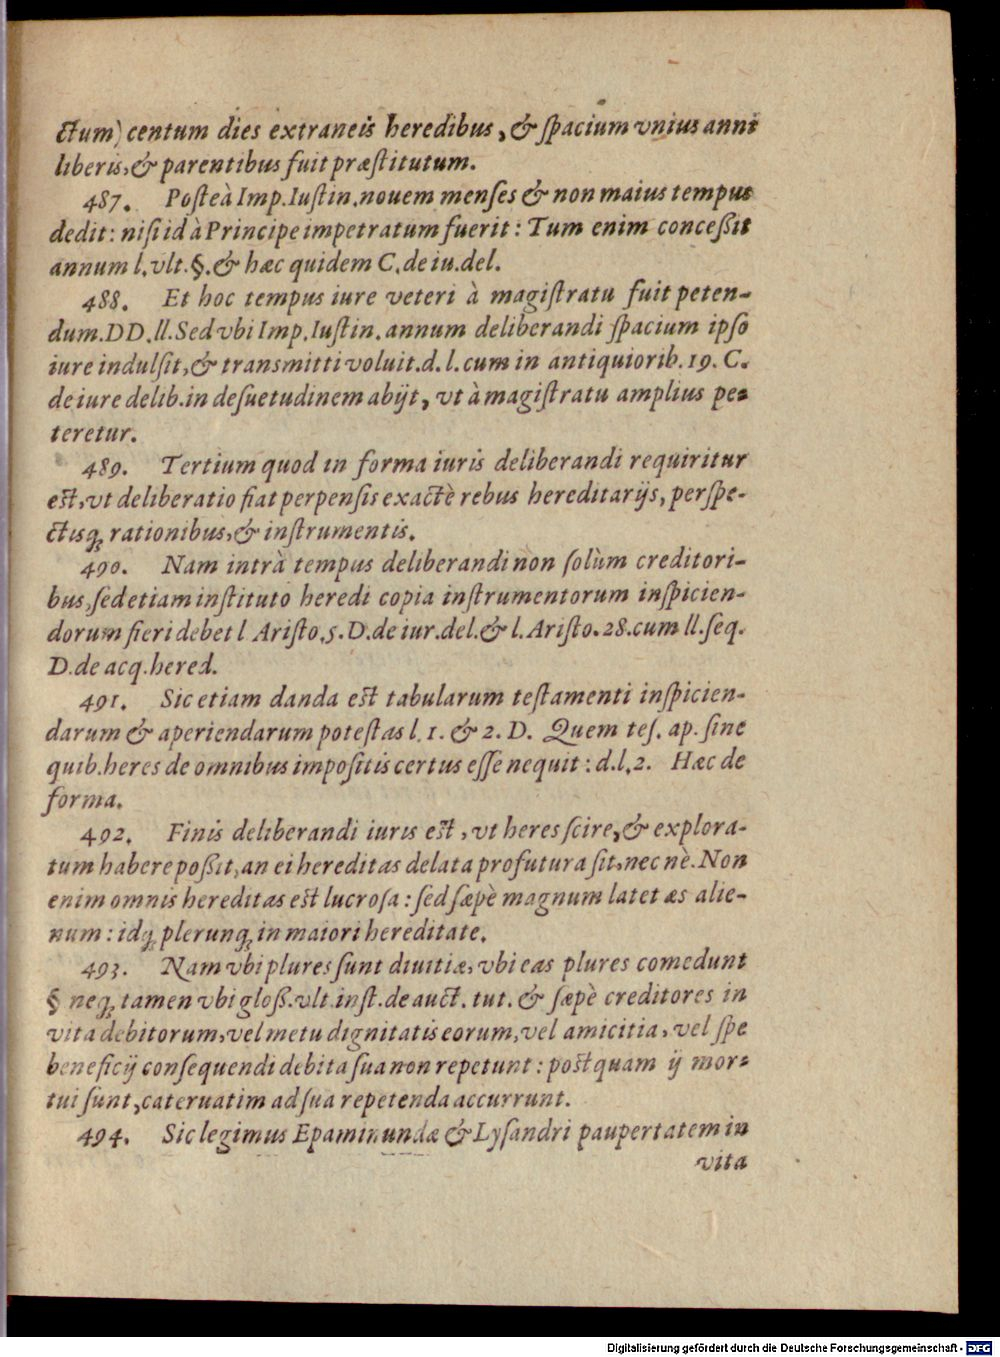 ctum) centum dies extraneis heredibus, & ſpacium vnius anni
liberis, & parentibus fuit præſtitutum.
487. Poſteà Imp. Iuſtin. nouem menſes & non maius tempus
dedit: niſi id à Principe impetratum fuerit: Tum enim conceßit
annum l. vlt. §. & hæc quidem C. de iu. del.
488. Et hoc tempus iure veteri à magiſtratu fuit peten-
dum. DD. ll. Sed vbi Imp. Iuſtin. annum deliberandi ſpacium ipſo
iure indulſit, & transmitti voluit. d. l. cum in antiquiorib. 19. C.
de iure delib. in deſuetudinem abijt, vt à magiſtratu amplius pe-
teretur.
489. Tertium quod in forma iuris deliberandi requiritur
est, vt deliberatio fiat perpenſis exactè rebus hereditarijs, perſpe-
ctisq; rationibus, & inſtrumentis.
490. Nam intrà tempus deliberandi non ſolùm creditori-
bus, ſed etiam inſtituto heredi copia inſtrumentorum inſpicien-
dorum fieri debet l Ariſto. 5. D. de iur. del. & l. Ariſto. 28. cum ll. ſeq.
D. de acq. hered.
491. Sic etiam danda est tabularum teſtamenti inſpicien-
darum & aperiendarum poteſtas l. 1. & 2. D. Quem teſ. ap. ſine
quib. heres de omnibus impoſitis certus eſſe nequit: d. l. 2. Hæc de
forma.
492. Finis deliberandi iuris est, vt heres ſcire, & explora-
tum habere poßit, an ei hereditas delata profutura ſit, nec nè. Non
enim omnis hereditas est lucroſa: ſed ſæpè magnum latet æs alie-
num: idq; plerunq; in maiori hereditate.
493. Nam vbi plures ſunt diuitiæ, vbi eas plures comedunt
§ neq; tamen vbi gloß. vlt. inſt. de auct. tut. & ſæpè creditores in
vita debitorum, vel metu dignitatis eorum, vel amicitia, vel ſpe
beneficij conſequendi debita ſua non repetunt: postquam ij mor-
tui ſunt, cateruatim ad ſua repetenda accurrunt.
494. Sic legimus Epaminundæ & Lyſandri paupertatem in
vita
Digitalisierung gefördert durch die Deutsche Forschungsgemeinschaft - DFG